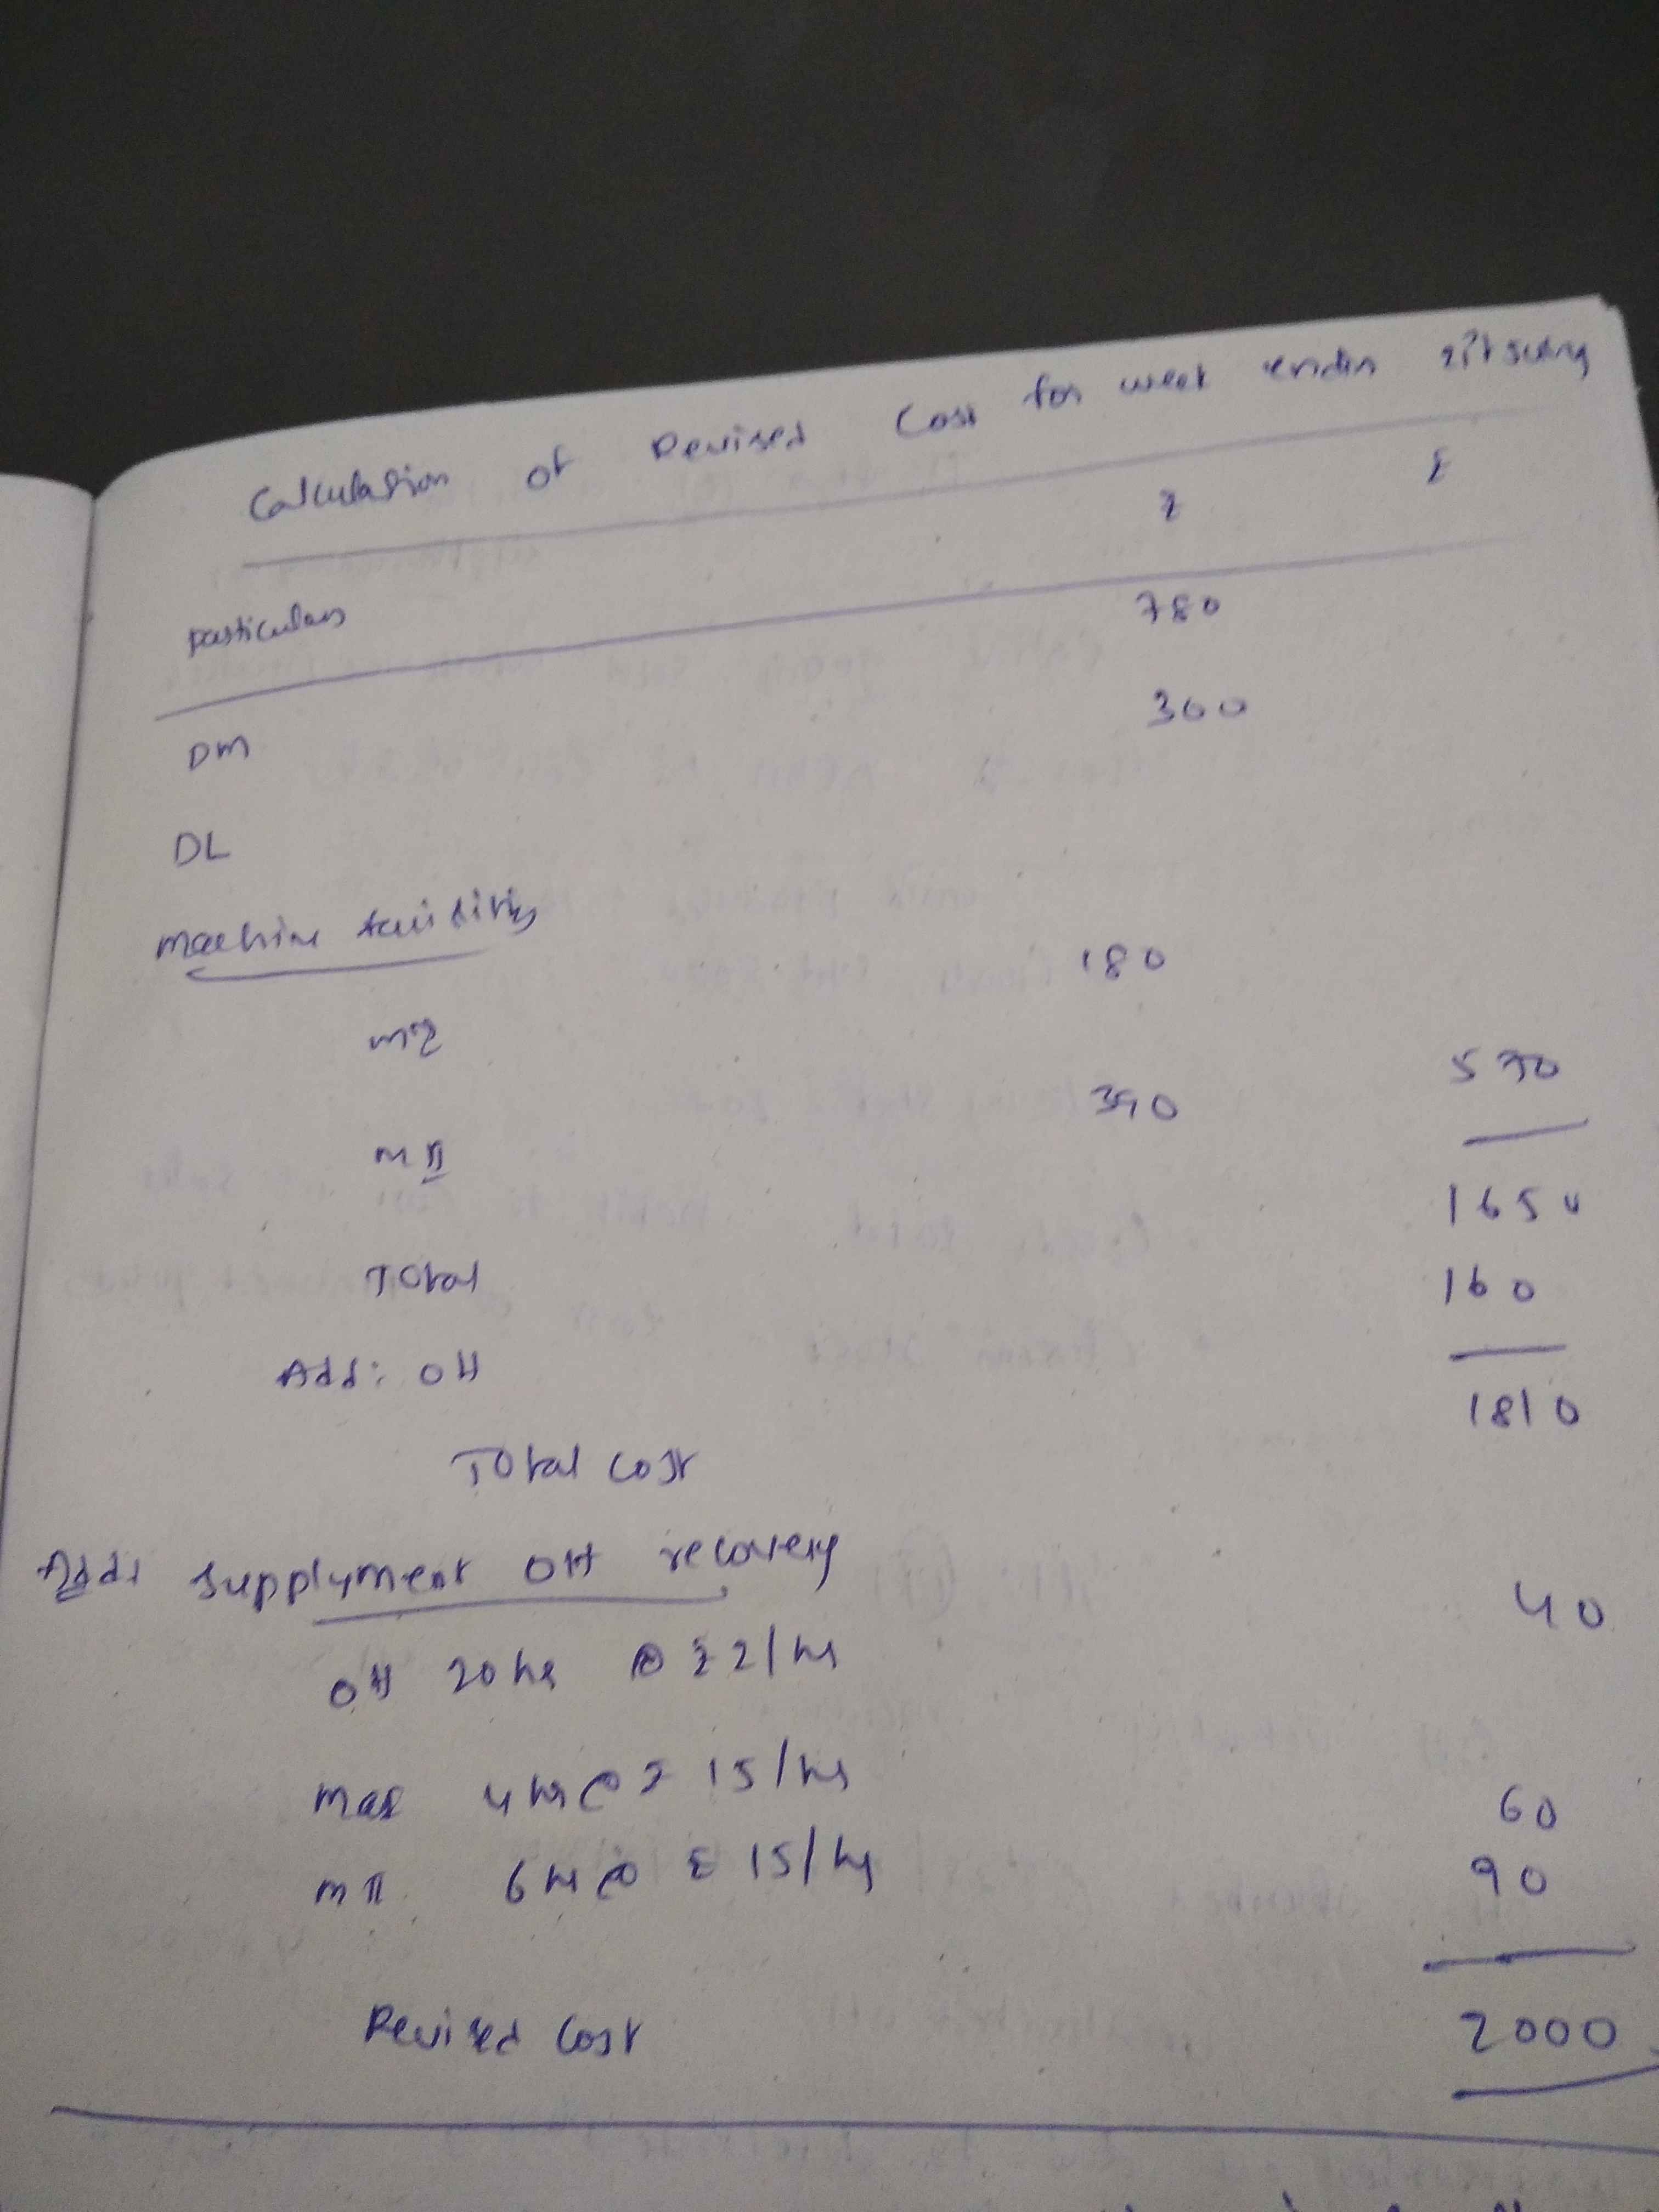 Calculation of Revised Cost for week endin
₹ ₹
Particulars
DM 780
DL 300
Machine
MI 180
M II 390 570
Total 1650
Add: OH 160
Total cost 1810
Add: Supplyment OH recovery
OH 20 hr @ ₹ 2/hr 40
4 hr @ ₹ 15/hr 60
M II 6 hr @ ₹ 15/hr 90
Revised Cost 2000